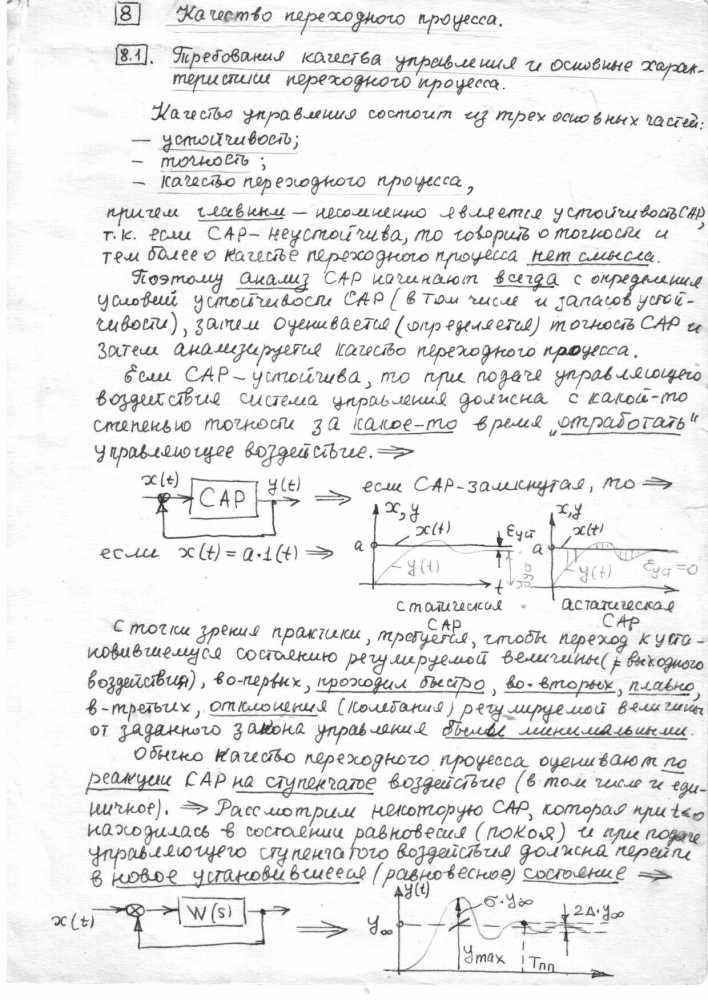 8 Качество переходного процесса.
8.1. Требования качества управления и основные харак-
теристики переходного процесса.
Качество управления состоит из трех основных частей:
— устойчивость;
— точность;
— качество переходного процесса,
причем главным — несомненно является устойчивость САР,
т.к. если САР – неустойчива, то говорить о точности и
тем более о качестве переходного процесса нет смысла.
Поэтому анализ САР начинают всегда с определения
условий устойчивости САР (в том числе и запасов устой-
чивости), затем оценивается (определяется) точность САР и
затем анализируется качество переходного процесса.
Если САР – устойчива, то при подаче управляющего
воздействия система управления должна с какой-то
степенью точности за какое-то время „отработать"
управляющее воздействие. ⇒
x(t) САР y(t) ⇒ если САР-замкнутая, то ⇒
x, y x(t) εуст a y(t) t
x, y x(t) a y(t) εуст=0
если x(t) = a·1(t) ⇒
статическая САР
астатическая САР
С точки зрения практики, требуется, чтобы переход к уста-
новившемуся состоянию регулируемой величины (выходного
воздействия), во-первых, проходил быстро, во-вторых, плавно,
в-третьих, отклонения (колебания) регулируемой величины
от заданного закона управления были минимальными.
Обычно качество переходного процесса оценивают по
реакции САР на ступенчатое воздействие (в том числе и еди-
ничное). ⇒ Рассмотрим некоторую САР, которая при t<0
находилась в состоянии равновесия (покоя) и при подаче
управляющего ступенчатого воздействия должна перейти
в новое установившееся (равновесное) состояние ⇒
x(t) W(s) ⇒ y(t) σ·y∞ y∞ 2Δ·y∞ ymax Tпп